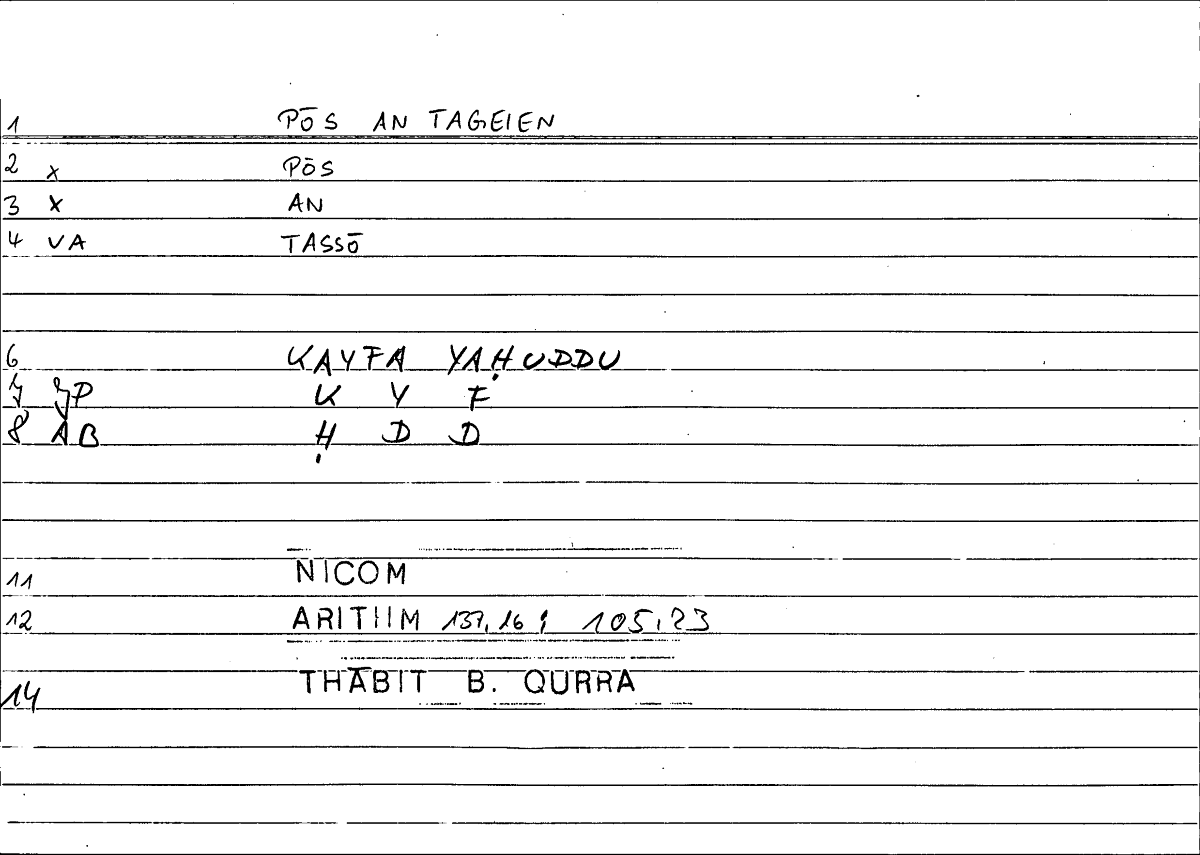 1 PŌS AN TAGEIEN
2 x PŌS
3 x AN
4 VA TASSŌ
6 KAYFA YAḤUDDU
7 JP K Y F
8 AB Ḥ D D
11 NICOM
12 ARITHM 137,16; 105,23
14 THĀBIT B. QURRA